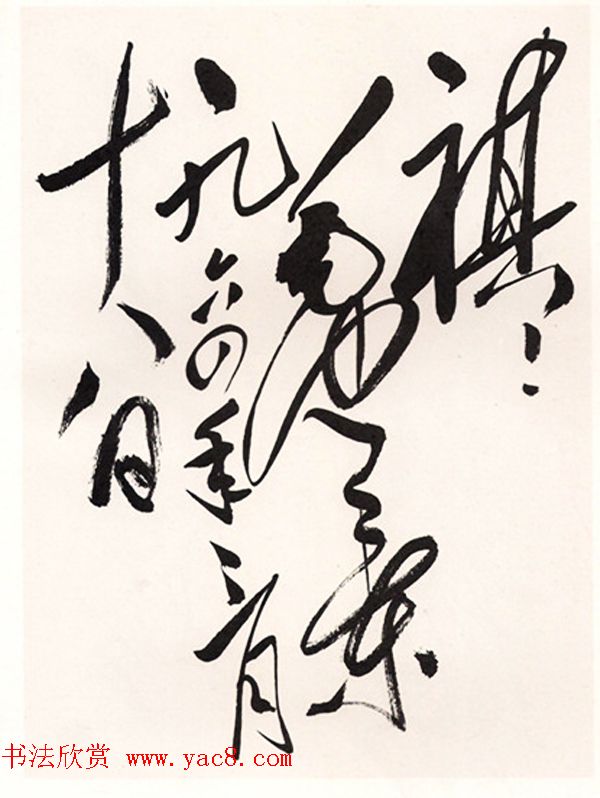 祺！
毛澤東
一九六四年三月
十八日
书法欣赏 www.yac8.com